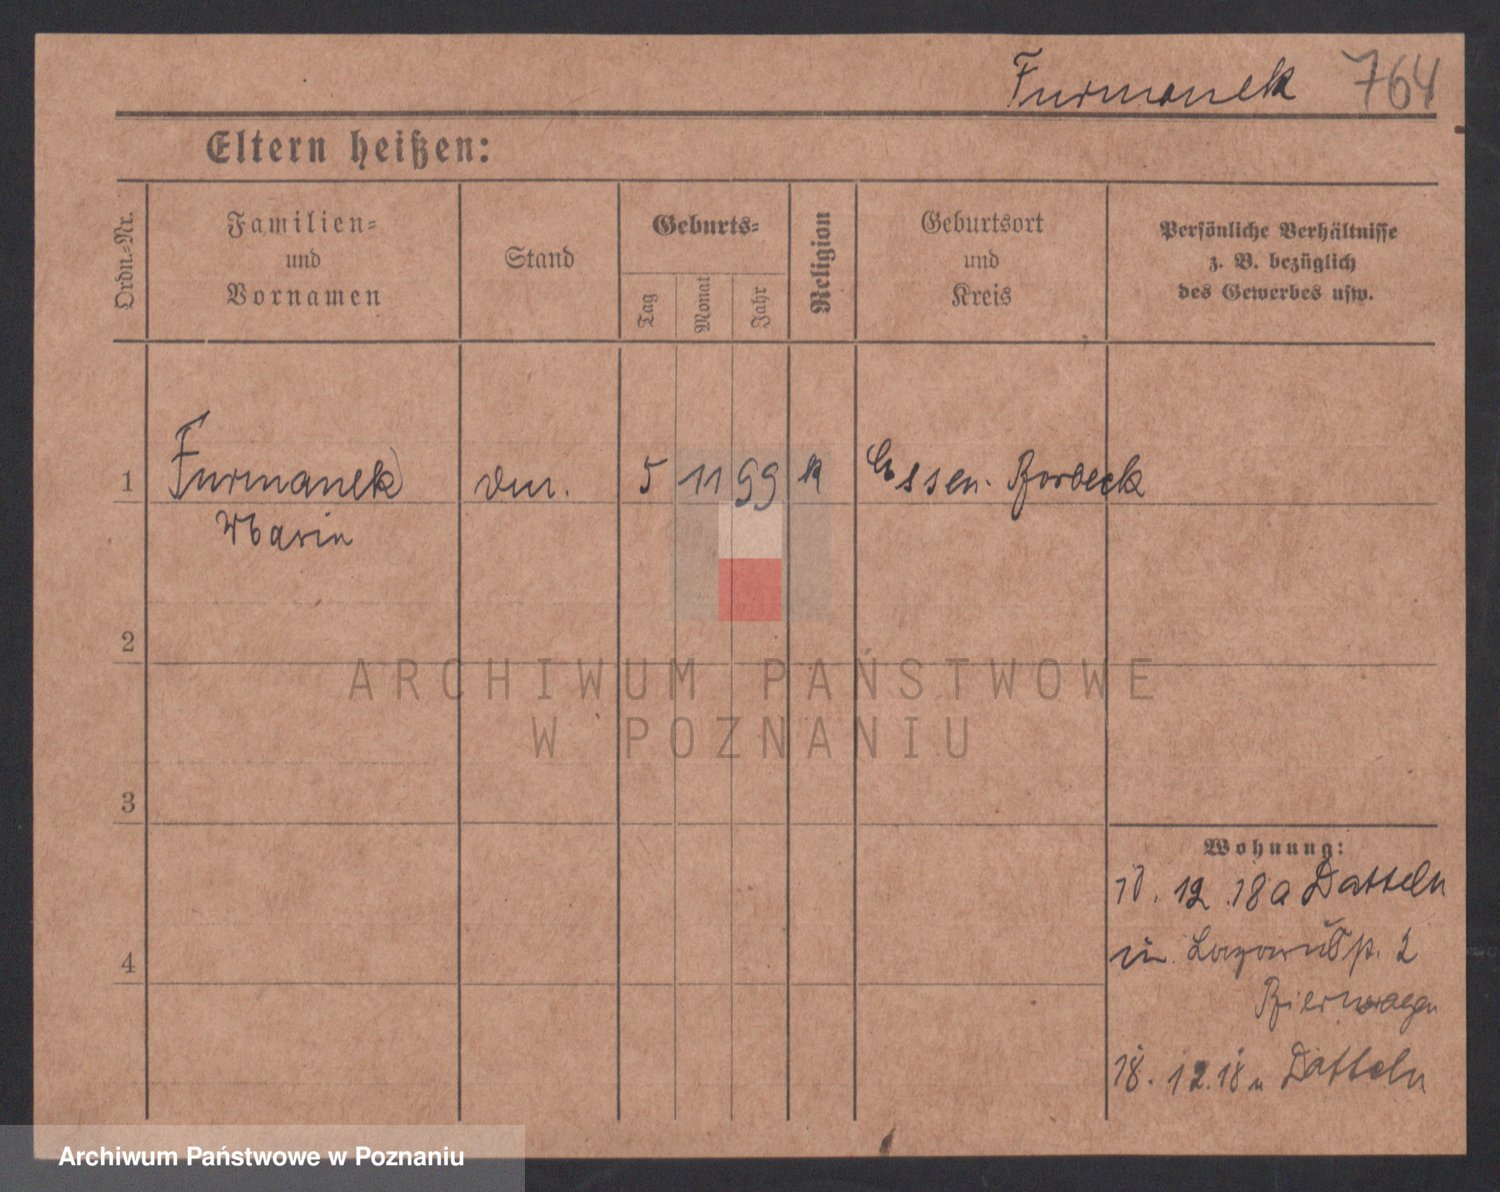 Furmanek 764
Eltern heißen:
Ordn.-Nr.
Familien-
und
Vornamen
Stand
Geburts-
Tag
Monat
Jahr
Religion
Geburtsort
und
Kreis
Persönliche Verhältnisse
z. B. bezüglich
des Gewerbes usw.
1 Furmanek 5 11 99 k Essen-Borbeck
Maria
2
3
4
Wohnung:
12 18 a Datteln
in 2
18. 12. 18 n Datteln
ARCHIWUM PAŃSTWOWE
W POZNANIU
Archiwum Państwowe w Poznaniu